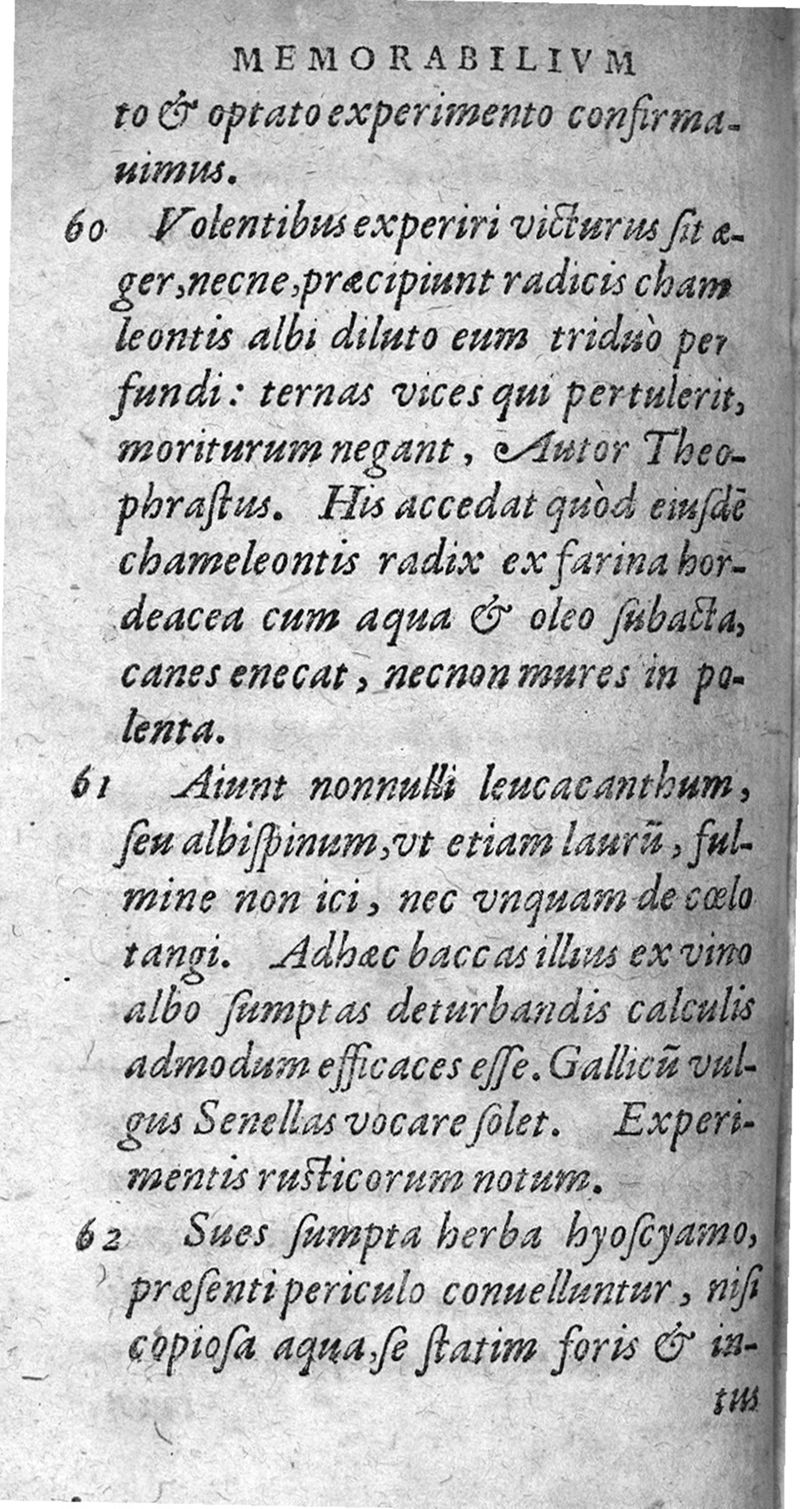 MEMORABILIVM
to & optato experimento confirma-
uimus.
60 Volentibus experiri victurus ſit æ-
ger, necne, præcipiunt radicis cham
leontis albi diluto eum triduò per
fundi: ternas vices qui pertulerit,
moriturum negant, Autor Theo-
phraſtus. His accedat quòd eiuſdē
chameleontis radix ex farina hor-
deacea cum aqua & oleo ſubacta,
canes enecat, necnon mures in po-
lenta.
61 Aiunt nonnulli leucacanthum,
ſeu albiſpinum, vt etiam laurū, ful-
mine non ici, nec vnquam de cœlo
tangi. Adhæc baccas illius ex vino
albo ſumptas deturbandis calculis
admodum efficaces eſſe. Gallicū vul-
gus Senellas vocare ſolet. Experi-
mentis ruſticorum notum.
62 Sues ſumpta herba hyoſcyamo,
præſenti periculo conuelluntur, niſi
copioſa aqua, ſe ſtatim foris & in-
tus